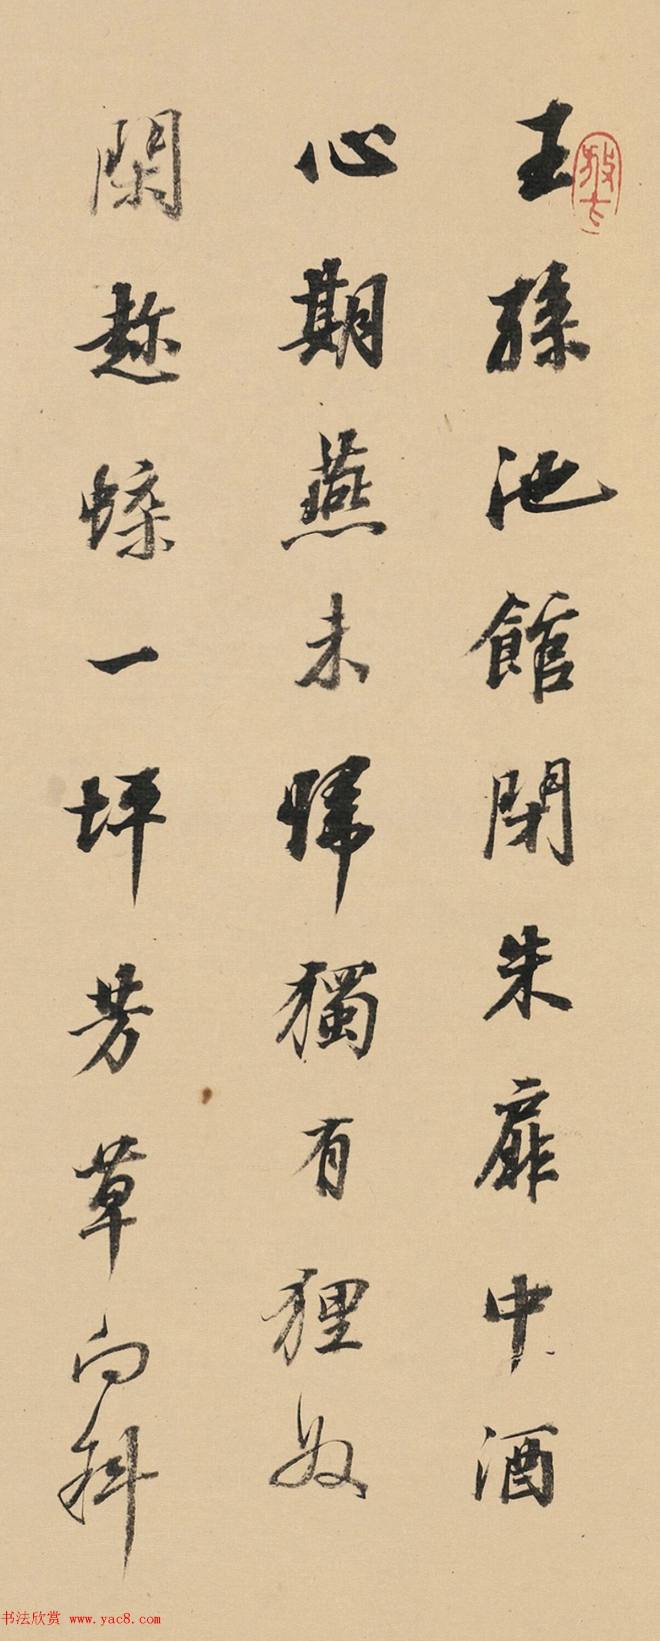 王孫池館閉朱扉中酒
心期燕未歸獨有狸奴
閑趂蝶一坪芳草向斜
书法欣赏 www.yac8.com